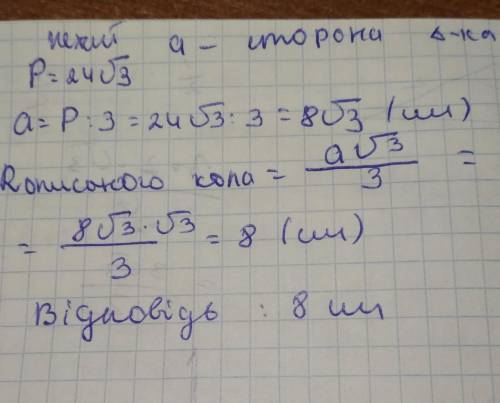 нехий a - сторона Δ-ка
P=24√3
a= P:3 = 24√3:3 = 8√3 (см)
Rописаного кола = a√3/3 =
= 8√3·√3/3 = 8 (см)
Відповідь : 8 см